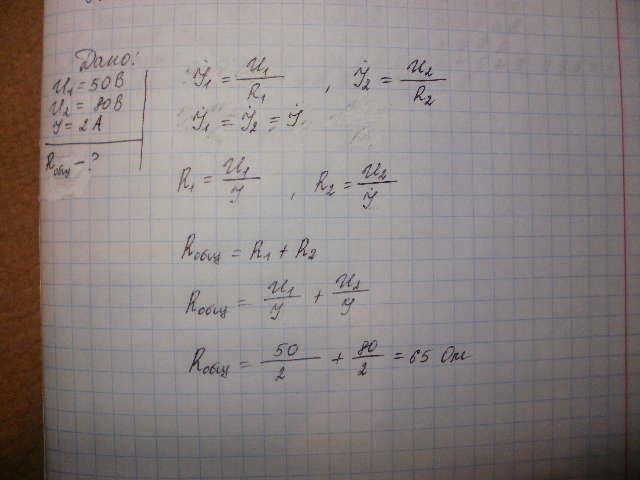 Дано:
U₁ = 50 В
U₂ = 80 В
У = 2 А
Rобщ - ?
У₁ = U₁/R₁ , У₂ = U₂/R₂
У₁ = У₂ = У
R₁ = U₁/У , R₂ = U₂/У
Rобщ = R₁ + R₂
Rобщ = U₁/У + U₂/У
Rобщ = 50/2 + 80/2 = 65 Ом